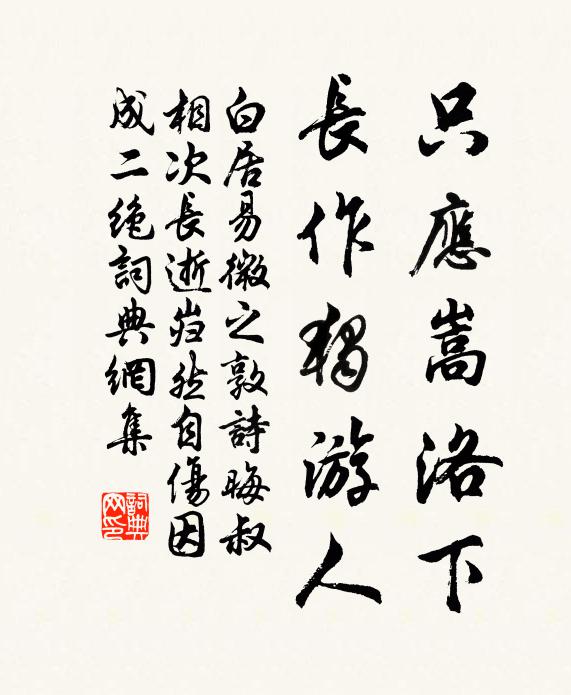 只應嵩洛下
長作獨游人
白居易微之敦詩晦叔
相次長逝岿然自傷因
成二絶詞典網集
詞典网印